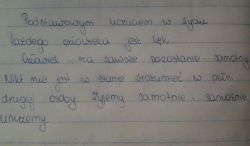 Podstawowym uczuciem w życiu
każdego człowieka jest lęk.
Człowiek na zawsze pozostanie samotny.
Nikt nie jest w stanie zrozumieć w pełni
drugiej osoby. Żyjemy samotnie i samotnie
umrzemy.